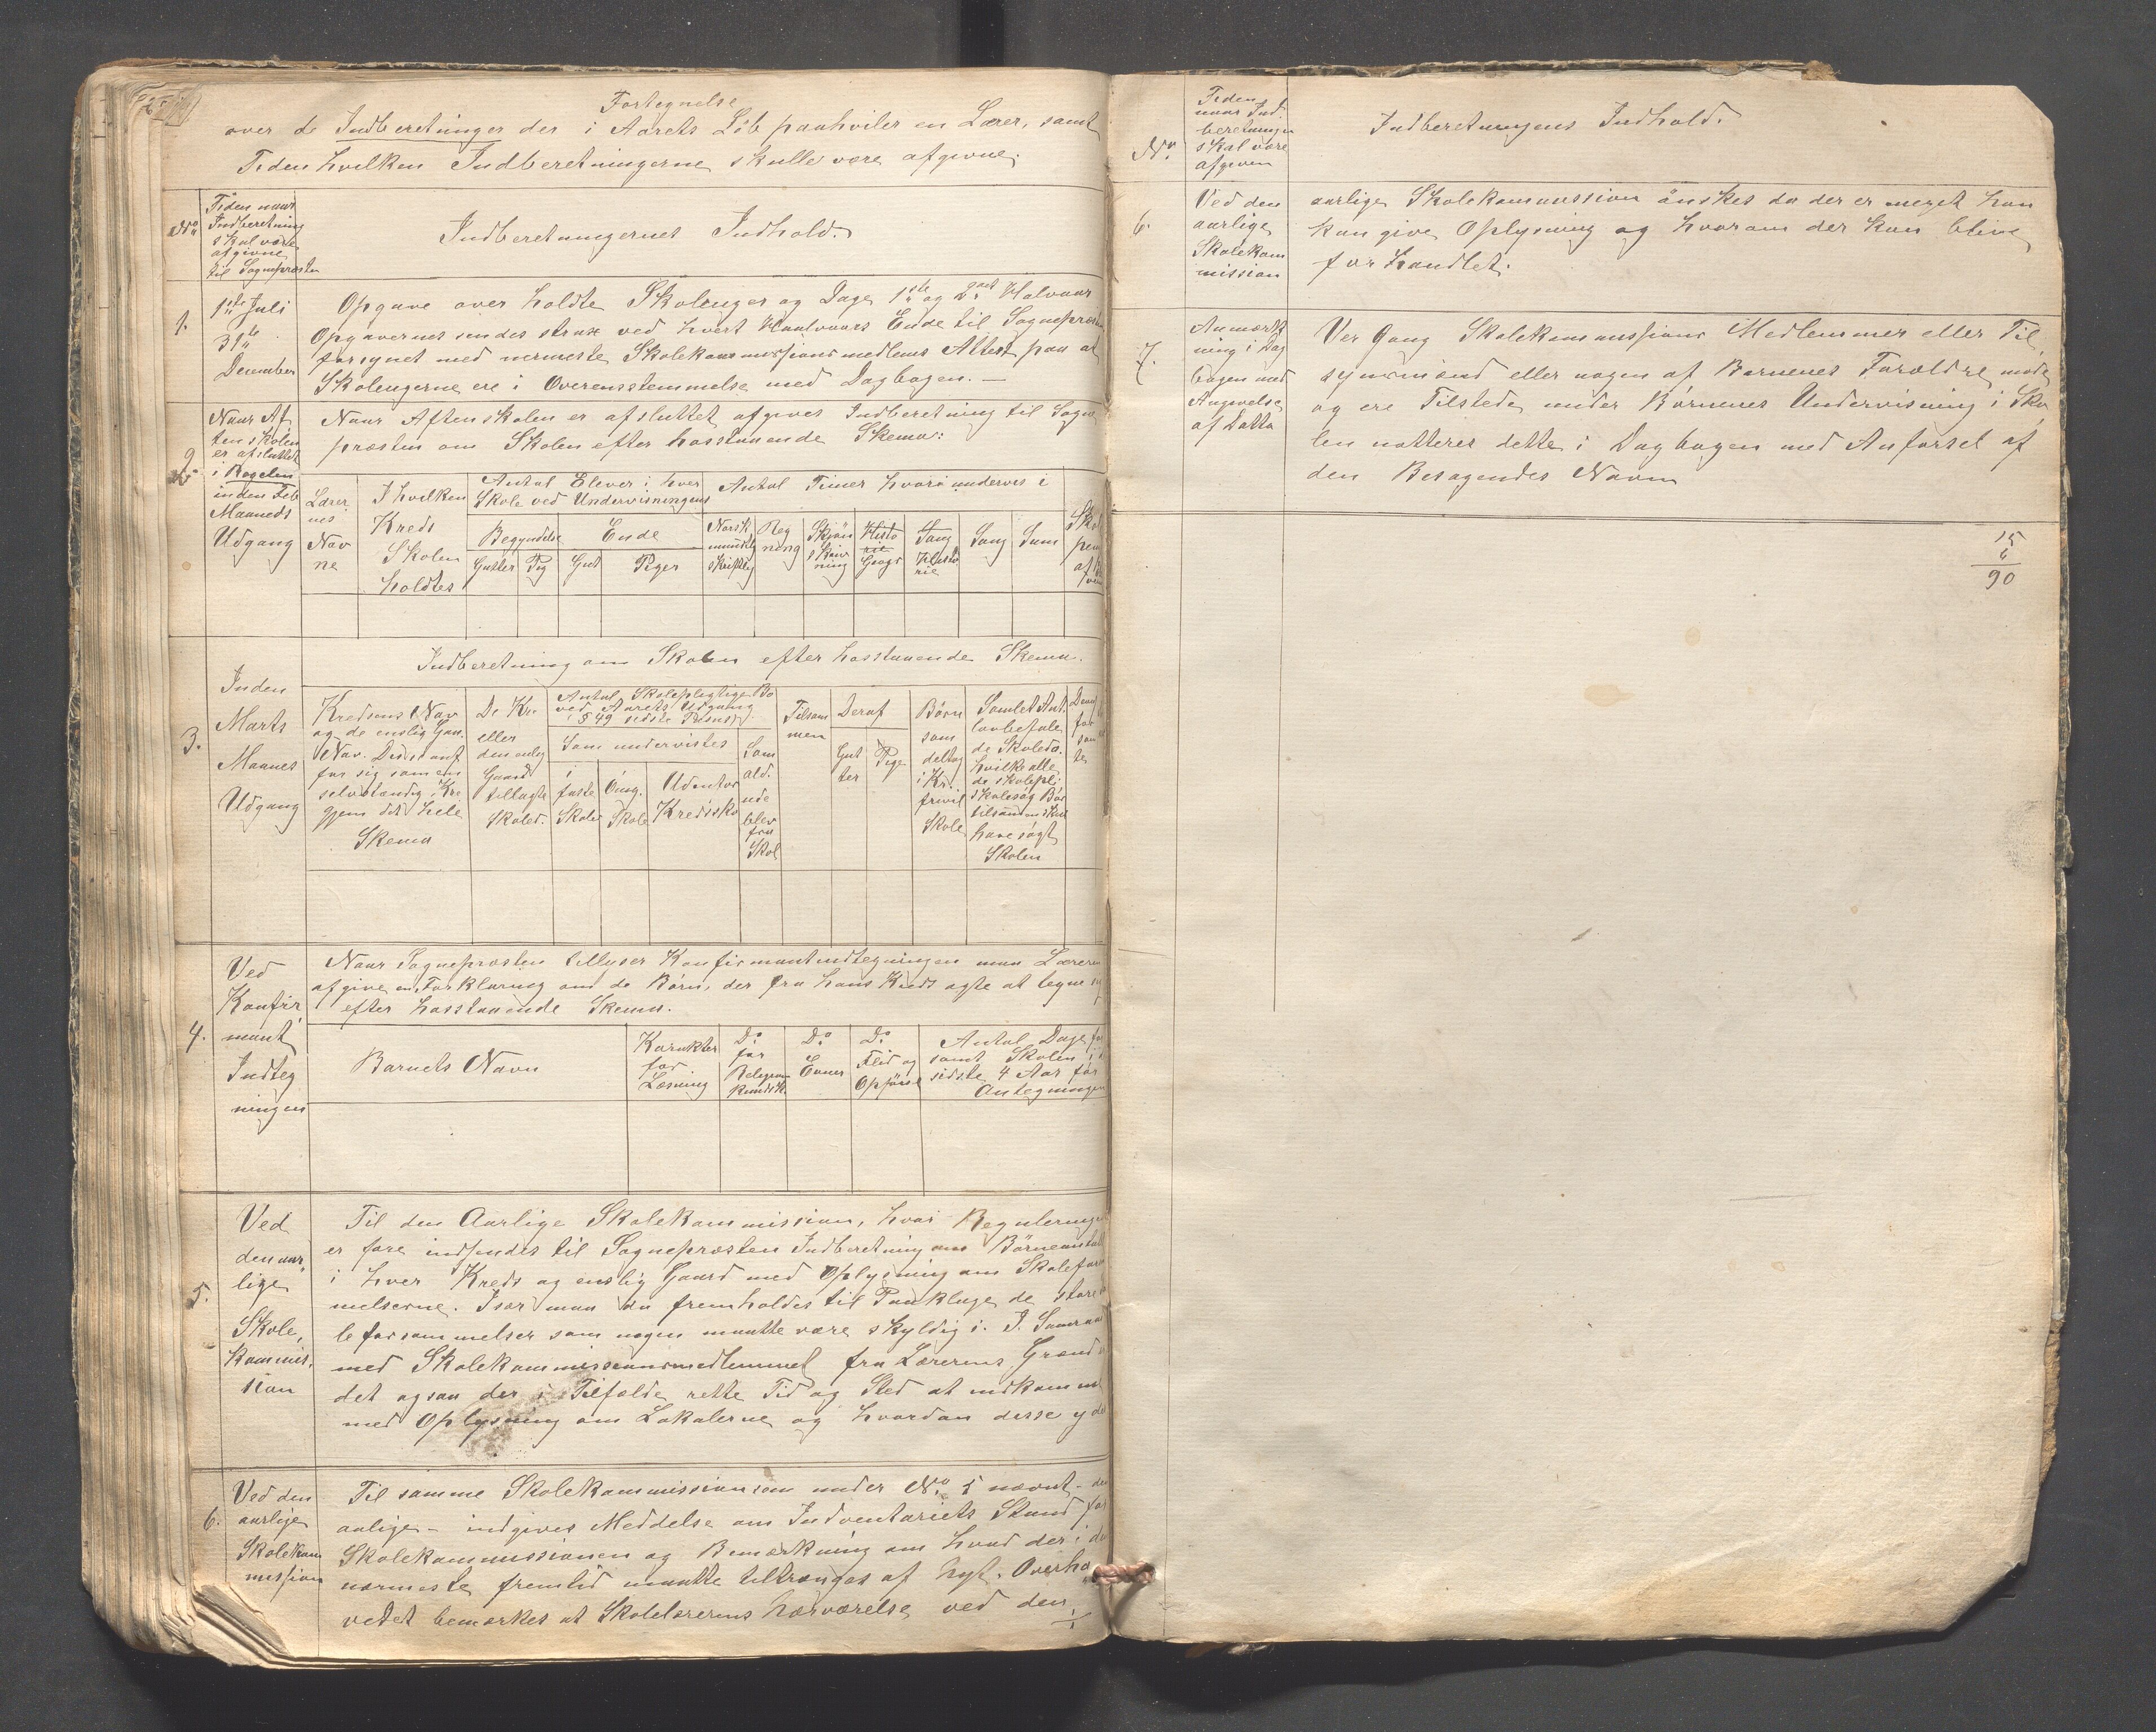 Fortegnelse
over de Indberetninger der i Aarets Löb paahviler en Lærer, samt
Tiden hvilken Indberetningerne skulle være afgivne.
No
Tiden naar
Indberetning
skal være
afgivne
til Sognepræsten
Indberetningernes Indhold.
1.
1ste Juli
31te
December
Opgave over holdte Skoleuger og Dage 1ste og 2det Halvaar
Opgavernes sendes strax ved hvert Haalvaars Ende til Sognepræsten
forsynet med nærmeste Skolekommissions medlems Attest paa at
Skolengerne ere i Overensstemmelse med Dagbogen. —
2
Naar Af
tenskolen
er afsluttet
i Regelen
inden Feb
Maaneds
Udgang
Naar Aftenskolen er afsluttet afgives Indberetning til Sogne
præsten om Skolen efter hosstaaende Skema:
Lærer
nes
Nav
ne
I hvilken
Kreds
Skolen
holdtes
Antal Elever i hver
Skole ved Undervisningens
Begyndelse
Ende
Gutter
Pig
Gut
Piger
Antal Timer hvori undervis i
Norsk
mundtlig
skriftlig
Reg
ning
Skjön
skriv
ning
Histo
rie
Geogr
Sang
Histo
rie
Sang
Sum
3.
Inden
Marts
Maanes
Udgang
Indberetning om Skolen efter hosstaaende Skema.
Kredsens Nav
og de enslig Gaa.
Nav. Disse anf
for sig som en
selvstændig Kre
gjem det hele
Skema
De Kre
eller
den enlig
Gaard
tillagte
Skoled.
Antal Skolepligtige Bö
ved Aarets Udgang
(§49 sidste Passus)
Som undervistes
i
faste
Skole
Omg.
Skole
Udenfor
Kredssko
Som
ald.
nde
blev
fra
Skol
Tilsam
men
Deraf
Gut
ter
Pige
Börn
som
deltog
i Kr.
friwil
Skole
Samlet Ant.
lovbefale
de Skoleda.
hvilke alle
de skolepl:
skolesög Bör
tilsammen skul
have sögt
Skolen
4.
Ved
Konfir
mant
Indteg
ningen
Naar Sognepræsten tillyser Konfirmantindtegningen maa Læreren
afgive en Forklaring om de Börn, der fra hans Kreds agte at tegne sig
efter hosstaaende Skema.
Barnets Navn
Karakter
for
Læsning
Do
for
Religions
kundsk.
Do
Evner
Do
Flid og
Opförsel
Antal Dage for
sömt Skolen i de
sidste 4 Aar för
Antegningen
5.
Ved
den aar
lige
Skole,
kommis.
sion
Til den Aarlige Skolekommission, hvor Reguleringen
er fore indsendes til Sognepræsten Indberetning om Börneantal
i hver Kreds og enslig Gaard med Oplysning om Skolefors
melserne. Især maa da fremholdes til Paaklage de store
leforsommelser som nogen maatte være skyldig i. I Samraad
med Skolekommissionsmedlemmet fra Lærerens Grænd
det ogsaa der i Tilfælde rette Tid og Sted at indkomme
med Oplysning om Lokalerne og hvordan disse yde
6.
Ved den
aarlige
Skolekom
mission
Til samme Skolekommission som under No 5 nævnt – den
aalige – indgives Meddelse om Indventariets Stand for
Skolekommissionen og Bemærkning om hvad der i de
nærmeste fremtid maatte tiltrænges af Nyt. Overho
vedet bemærkes at Skolelærerens hærværelse ved den
No.
Tiden
naar Ind.
beretningen
skal være
afgiven
Indberetningens Indhold.
6.
Ved den
aarlige
Skolekom
mission
aarlige Skolekommission önskes da der er meget han
kan give Oplysning og hvorom der kan blive
forhandlet.
7.
Anmærk
ning i Dag
bogen med
Angivelse
af Datto
Ver Gang Skolekommissions Medlemmer eller Til
synsmænd eller nogen af Barnenes Forældre møde
og ere Tilstede under Börnenes Undervisning i Sko
len notteres dette i Dagbogen med Anförsel af
den Besøgendes Navn
15
6
90